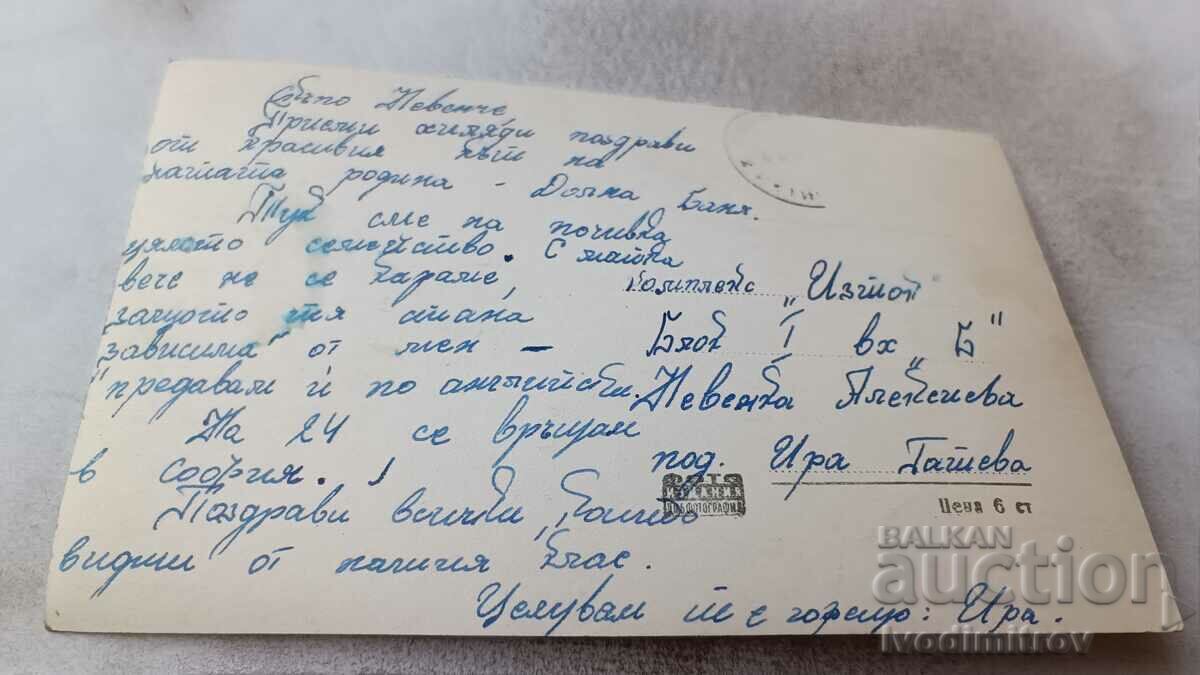 Скъпо Невенче
Приеми хиляди поздрави
от красивия кът на
нашата родина - Долна Баня.
Тук сме на почивка
цялото семейство. С майка
вече не се караме,
защото тя стана
"зависима" от мен -
предавам ѝ по английски.
На 24 се връщам
в София.
Поздрави всички,
видиш от нашия клас.
Целувам те горещо: Ира.
Комплекс "Изток"
Блок 1 вх "Б"
Невенка Алексиева
под. Ира Ташева
ИЗДАНИЯ
ФОТОГРАФИЯ
Цена 6 ст
BALKAN
auction
Ivodimitrov